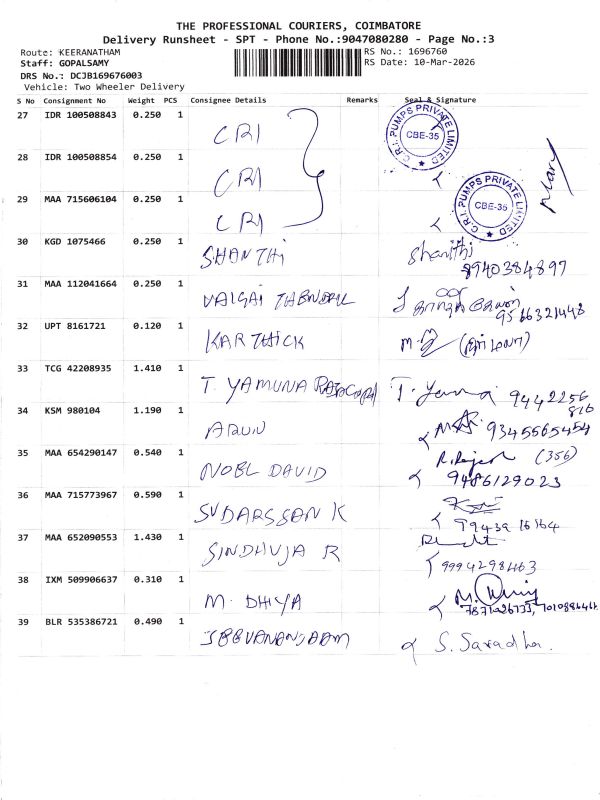 THE PROFESSIONAL COURIERS, COIMBATORE
Delivery Runsheet - SPT - Phone No.:9047080280 - Page No.:3
Route: KEERANATHAM RS No.: 1696760
Staff: GOPALSAMY RS Date: 10-Mar-2026
DRS No.: DCJB169676003
Vehicle: Two Wheeler Delivery
S No Consignment No Weight PCS Consignee Details Remarks Seal & Signature
27 IDR 100508843 0.250 1 CRI C.R.I. PUMPS PRIVATE LIMITED CBE-35
28 IDR 100508854 0.250 1 CRI
29 MAA 715606104 0.250 1 CRI C.R.I. PUMPS PRIVATE LIMITED CBE-35
30 KGD 1075466 0.250 1 SHANTHI Shanithi
8940384897
31 MAA 112041664 0.250 1 VAIGAI
9566321448
32 UPT 8161721 0.120 1 KARTHICK
33 TCG 42208935 1.410 1 T. YAMUNA 9442256
816
34 KSM 980104 1.190 1 ARUN 9345565454
35 MAA 654290147 0.540 1 NOBL DAVID R. Rajesh (356)
9486129023
36 MAA 715773967 0.590 1 SUDARSSAN K
99439 16164
37 MAA 652090553 1.430 1 SINDHUJA R
9994298463
38 IXM 509906637 0.310 1 M. DHIYA
39 BLR 535386721 0.490 1 S. Saradha.